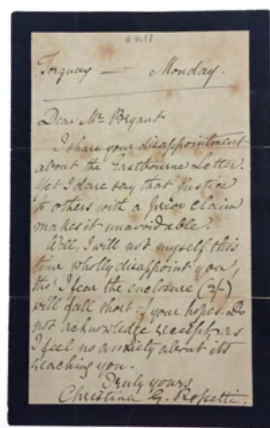 Torquay — Monday.
Dear Mr. Bryant
I share your disappointment
about the Eastbourne Letter.
Yet I dare say that justice
to others with a prior claim
makes it unavoidable.
Well, I will not myself this
time wholly disappoint you,
tho' I fear the enclosure (2/-)
will fall short of your hopes. Do
not acknowledge receipt as
I feel no anxiety about its
reaching you.
Truly yours
Christina G. Rossetti.